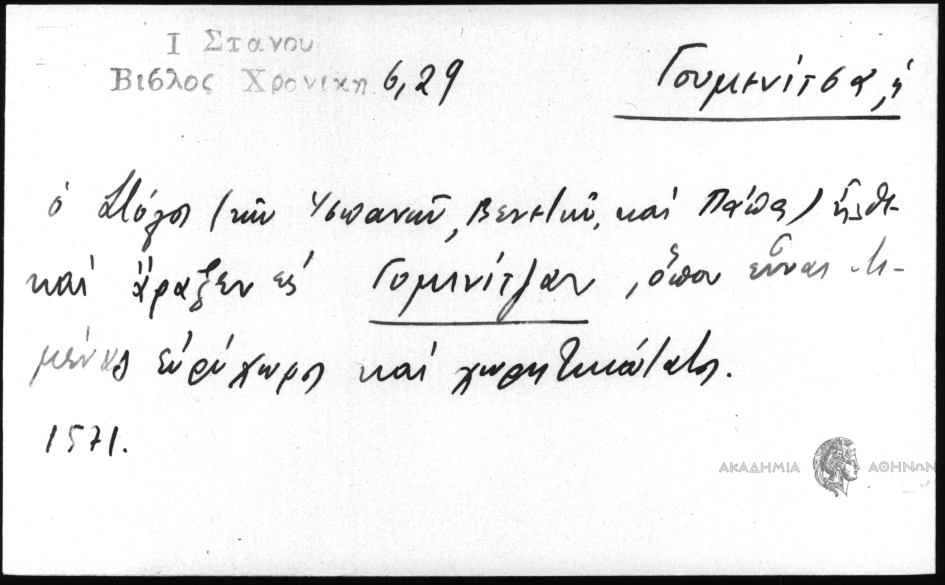 Ι Στανου
Βιβλος Χρονικη 6,29
Γουμενίτσα, ἡ
ὁ Στόλος (τῶν Ὑσπανῶν, Βενετῶν, καὶ Πάπα) ἦλθε
καὶ ἄραξεν εἰς Γομενίτζαν, ὅπου εἶναι λι-
μένας εὐρύχωρος καὶ χωρητικώτατος.
1571.
ΑΚΑΔΗΜΙΑ ΑΘΗΝΩΝ